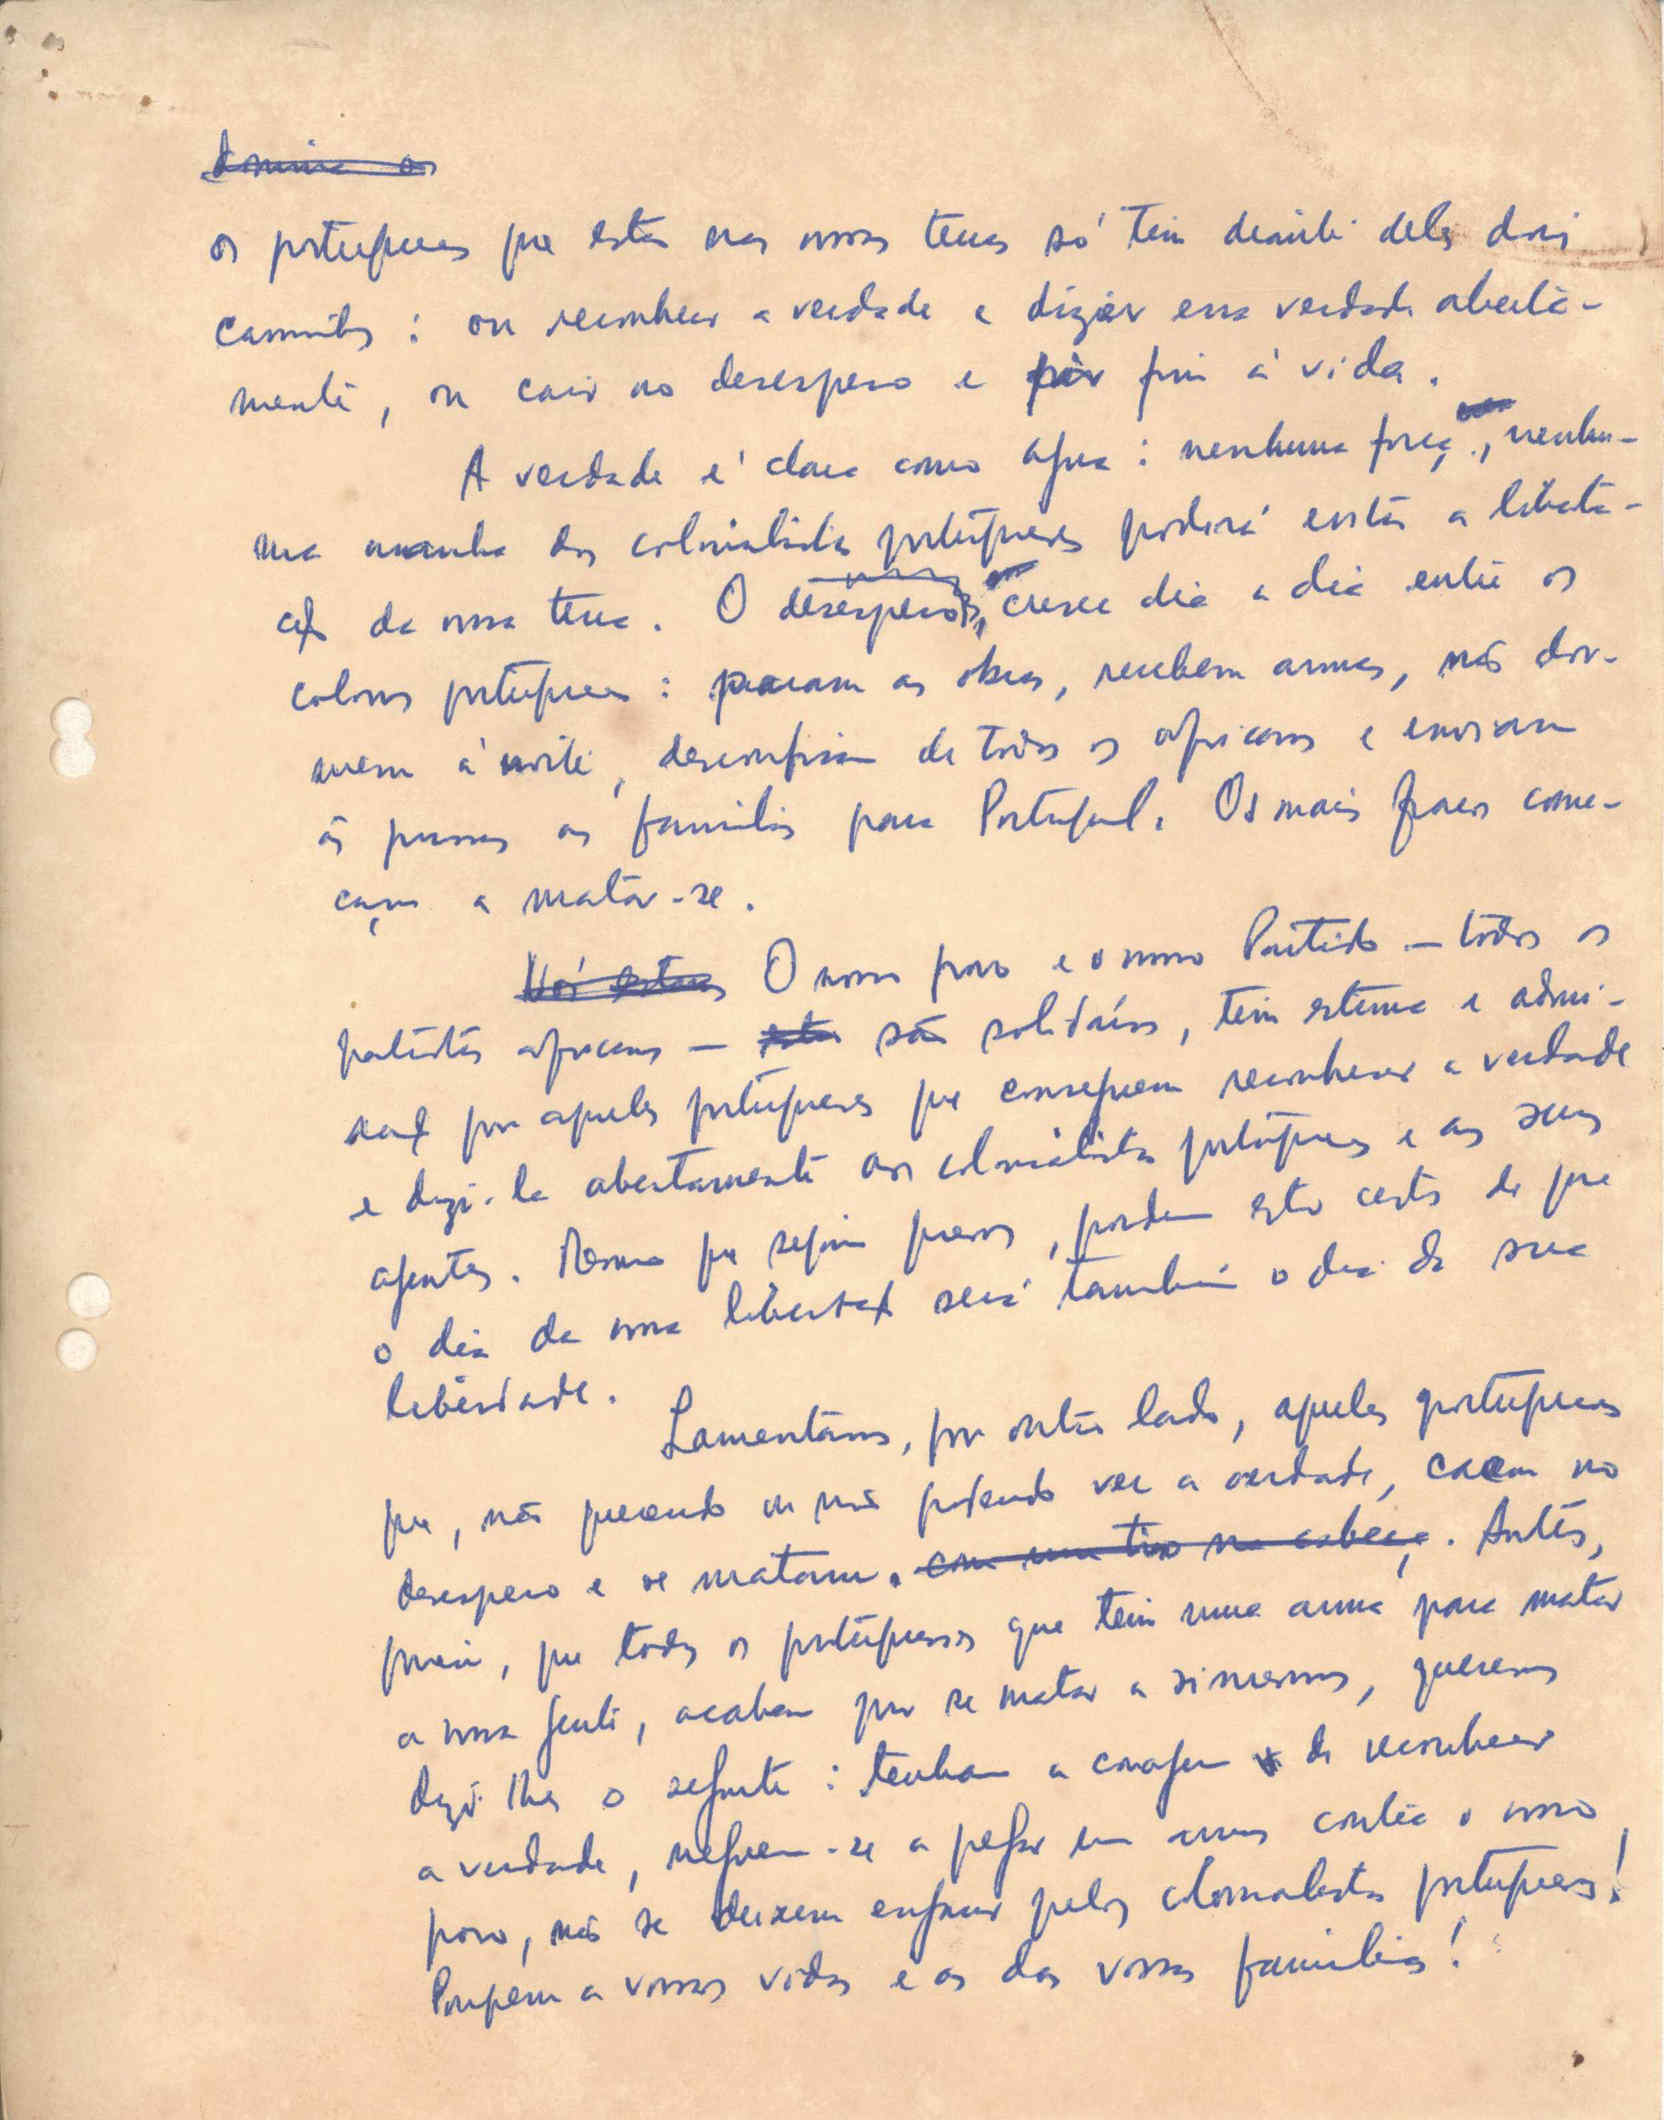 domina os
os portugueses que estão nas nossas terras só têm deante deles dois
caminhos : ou reconhecer a verdade e dizer essa verdade abertà-
mente, ou cair no desespero e pôr fim à vida.
A verdade é clara como água : nenhuma força, nenhu-
ma manha dos colonialistas portugueses poderá evitar a liberta-
ção da nossa terra. O desespero cresce dia a dia entre os
colonos portugueses : param as obras, recebem armas, não dor-
mem à noite, desconfiam de todos os africanos e enviam
às pressas as famílias para Portugal. Os mais fracos come-
çam a matar-se.
Nós estamos O nosso povo e o nosso Partido — todos os
patriotas africanos — estão são solidários, têm estima e admi-
ração por aqueles portugueses que conseguem reconhecer a verdade
e dizê-la abertamente aos colonialistas portugueses e aos seus
agentes. Mesmo que sejam presos, podem estar certos de que
o dia da nossa libertação será também o dia da sua
liberdade.
Lamentamos, por outro lado, aqueles portugueses
que, não querendo ou não podendo ver a verdade, caem no
desespero e se matam. com um tiro na cabeça. Antes,
porém, que todos os portugueses que têm uma arma para matar
a nossa gente, acabem por se matar a si mesmos, queremos
dizer-lhes o seguinte : tenham a coragem de reconhecer
a verdade, neguem-se a pegar em armas contra o nosso
povo, não se deixem enganar pelos colonialistas portugueses!
Poupem as vossas vidas e as das vossas famílias!